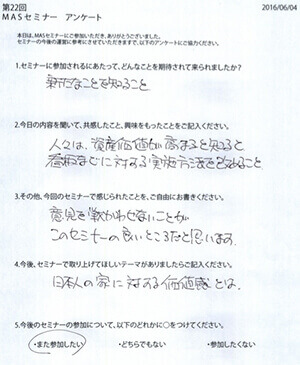 第22回
MASセミナー アンケート
2016/06/04
本日は、MASセミナーにご参加いただき、ありがとうございました。
セミナーの今後の運営に参考にさせていただきますので、以下のアンケートにご協力ください。
1.セミナーに参加されるにあたって、どんなことを期待されて来られましたか？
新たなことを知ること
2.今日の内容を聞いて、共感したこと、興味をもったことをご記入ください。
人々は、資産価値が高まると知ると
に対する実施方法を知ること
3.その他、今回のセミナーで感じられたことを、ご自由にお書きください。
意見を戦わせないことが
このセミナーの良いところだと思います。
4.今後、セミナーで取り上げてほしいテーマがありましたらご記入ください。
日本人の家に対する価値感とは、
5.今後のセミナーの参加について、以下のどれかに○をつけてください。
・また参加したい ・どちらでもない ・参加したくない